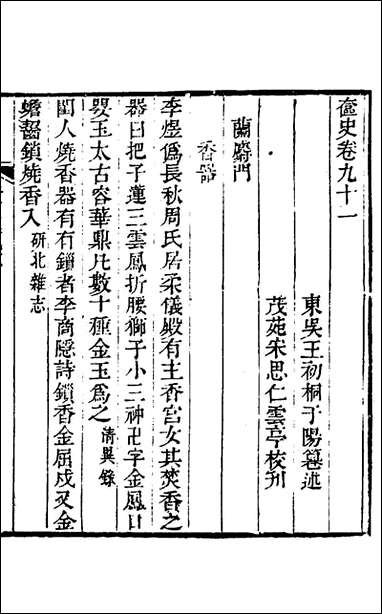 奩史卷九十一
東吳王初桐于陽纂述
茂苑宋思仁雲亭校刋
蘭麝門
香器
李煜爲長秋周氏居柔儀殿有主香宮女其焚香之
器曰把子蓮三雲鳳折腰獅子小三神卍字金鳳口
罌玉太古容華鼎凡數十種金玉爲之淸異錄
閨人燒香器有有鎖者李商隱詩鎖香金屈戍又金
蟾齧鎖燒香入硏北雜志